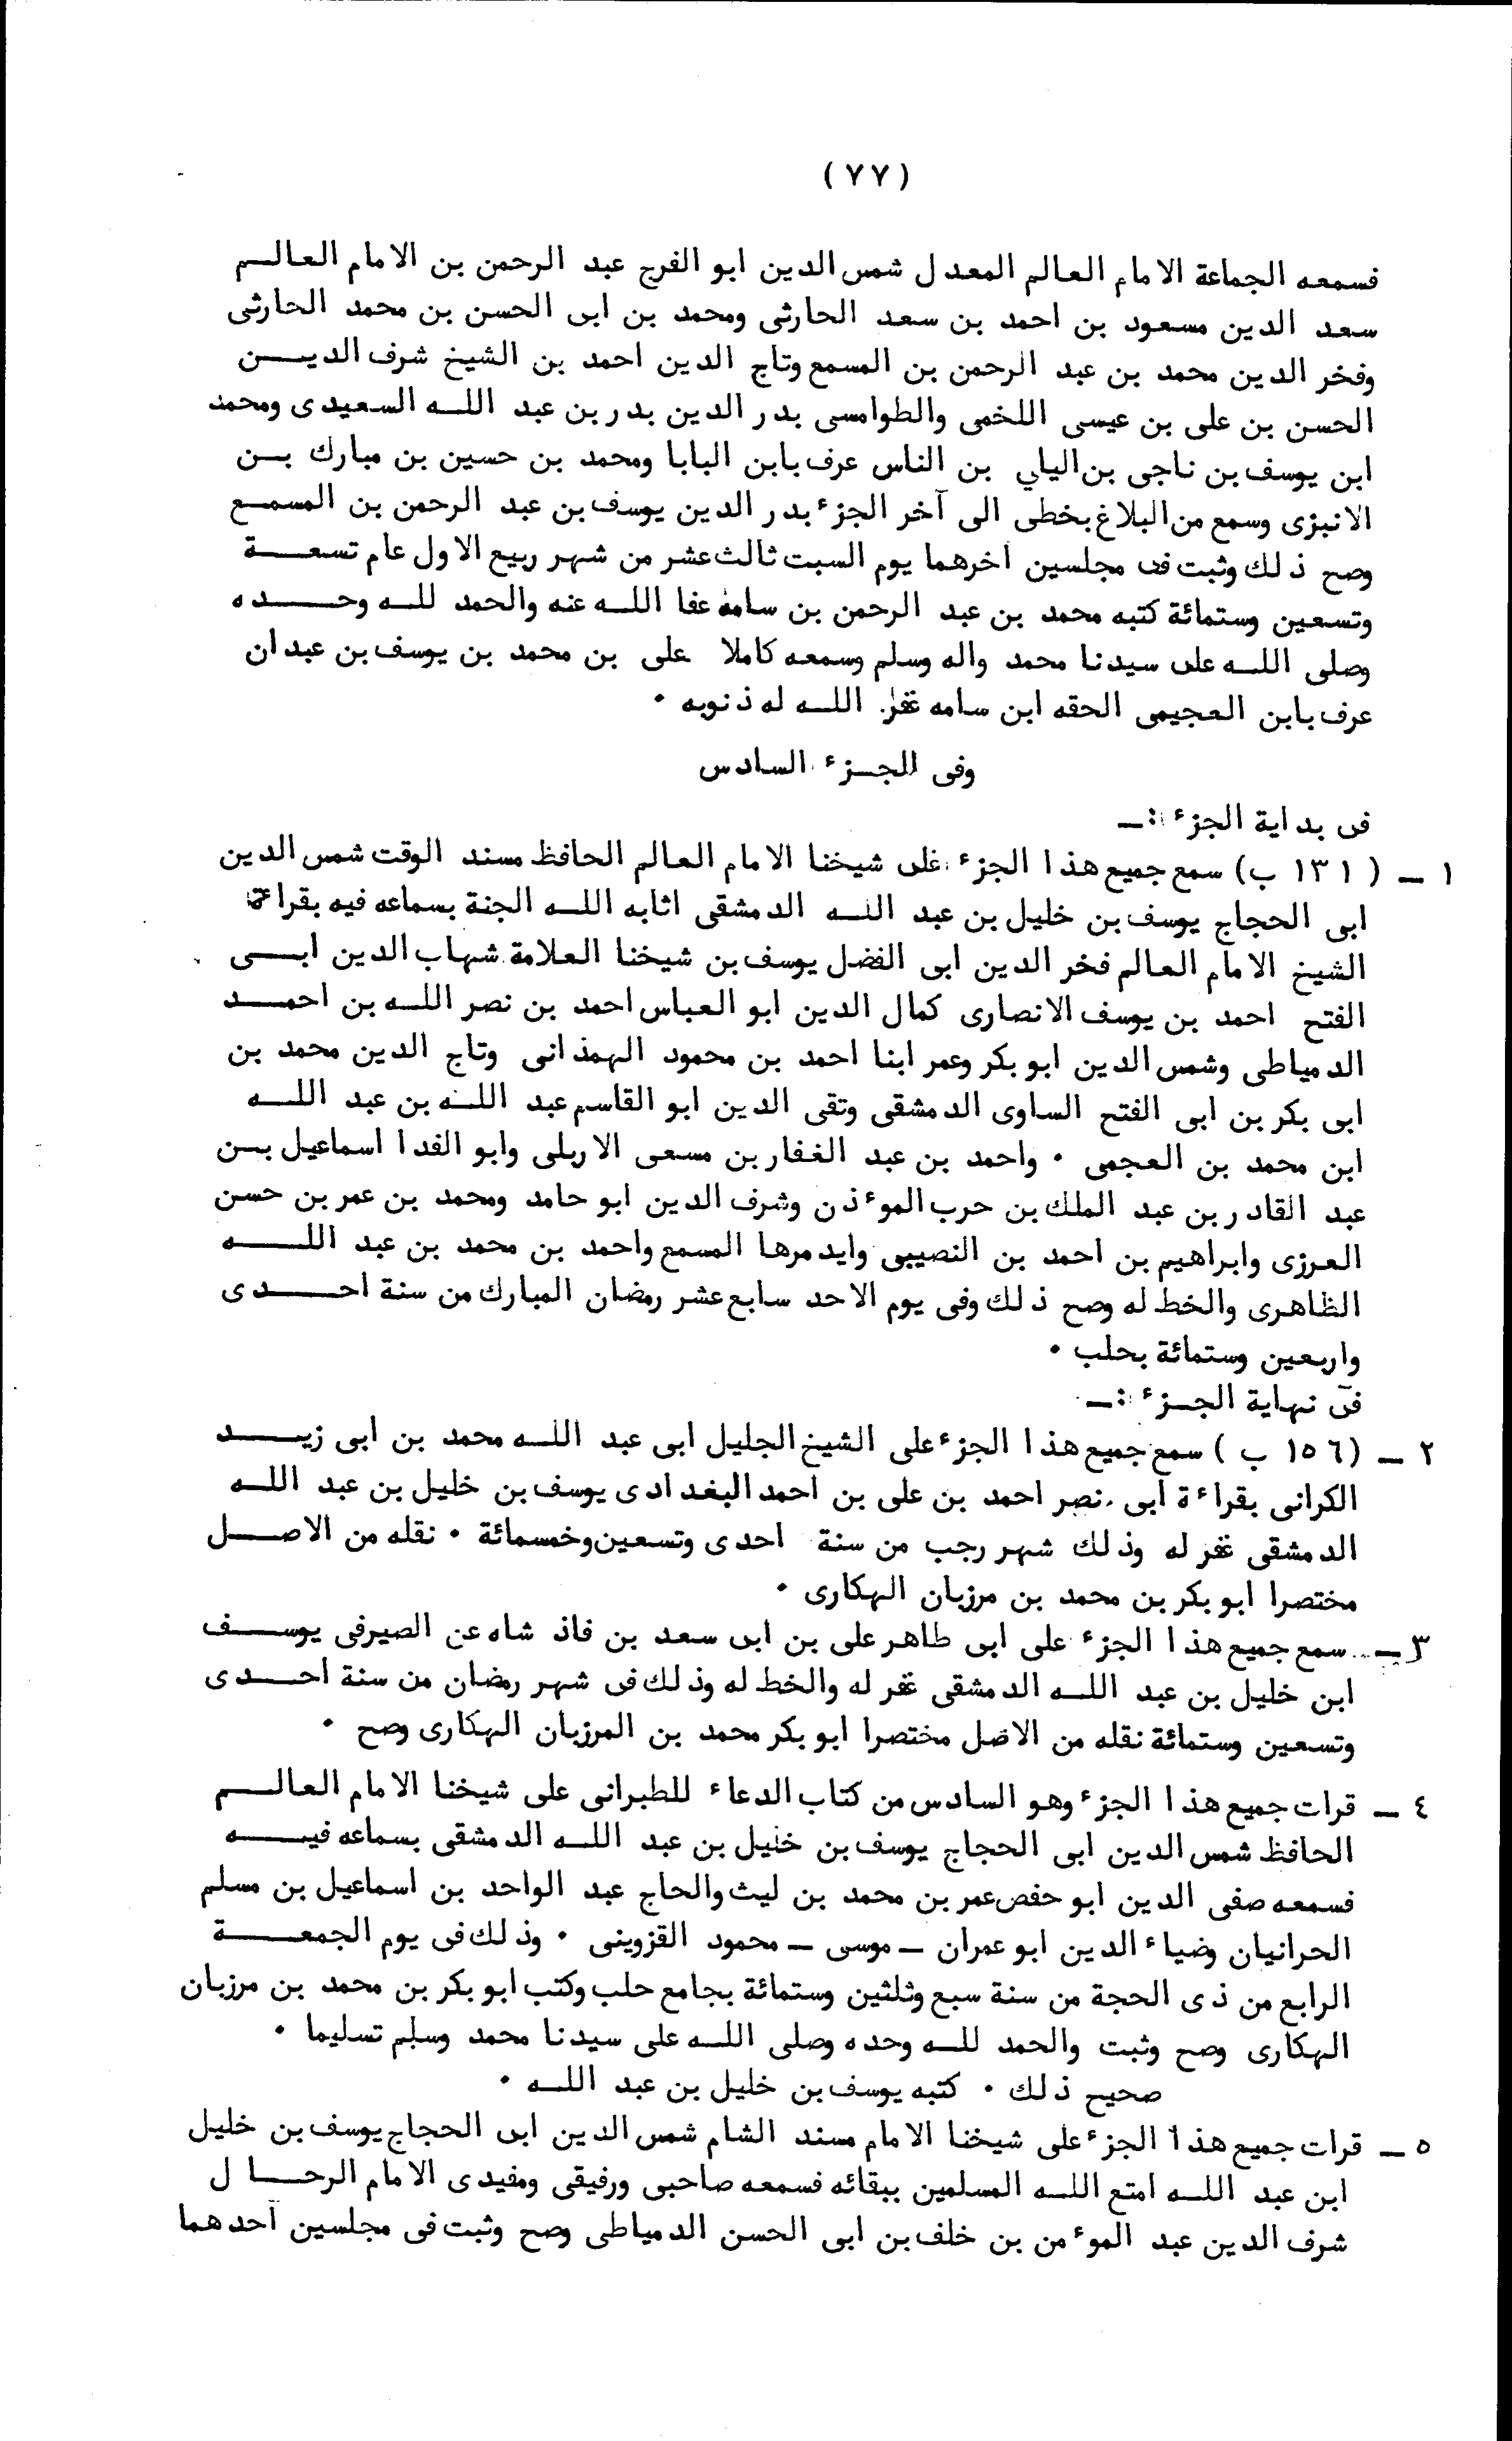 (٧٧)
فسمعه الجماعة الامام العالم المعدل شمس الدين ابو الفرج عبد الرحمن بن الامام العالم
سعد الدين مسعود بن احمد بن سعد الحارثى ومحمد بن ابى الحسن بن محمد الحارثى
وفخر الدين محمد بن عبد الرحمن بن المسمع وتاج الدين احمد بن الشيخ شرف الدين
الحسن بن على بن عيسى اللخمى والطوامسى بدر الدين بدر بن عبد الله السعيدى ومحمد
ابن يوسف بن ناجى بن اليلي بن الناس عرف بابن البابا ومحمد بن حسين بن مبارك بن
الانبزى وسمع من البلاغ بخطى الى آخر الجزء بدر الدين يوسف بن عبد الرحمن بن المسمع
وصح ذلك وثبت فى مجلسين اخرهما يوم السبت ثالث عشر من شهر ربيع الاول عام تسعة
وتسعين وستمائة كتبه محمد بن عبد الرحمن بن سامه عفا الله عنه والحمد لله وحده
وصلى الله على سيدنا محمد واله وسلم وسمعه كاملا على بن محمد بن يوسف بن عبدان
عرف بابن العجيمى الحقه ابن سامه غفر الله له ذنوبه .
وفى الجزء السادس
فى بداية الجزء :ـ
١ ـ (١٣١ ب) سمع جميع هذا الجزء على شيخنا الامام العالم الحافظ مسند الوقت شمس الدين
ابى الحجاج يوسف بن خليل بن عبد الله الدمشقى اثابه الله الجنة بسماعه فيه بقراءة
الشيخ الامام العالم فخر الدين ابى الفضل يوسف بن شيخنا العلامة شهاب الدين ابى
الفتح احمد بن يوسف الانصارى كمال الدين ابو العباس احمد بن نصر الله بن احمد
الدمياطى وشمس الدين ابو بكر وعمر ابنا احمد بن محمود الهمذانى وتاج الدين محمد بن
ابى بكر بن ابى الفتح الساوى الدمشقى وتقى الدين ابو القاسم عبد الله بن عبد الله
ابن محمد بن العجمى . واحمد بن عبد الغفار بن مسعى الاربلى وابو الفدا اسماعيل بن
عبد القادر بن عبد الملك بن حرب الموءذن وشرف الدين ابو حامد ومحمد بن عمر بن حسن
العرزى وابراهيم بن احمد بن النصيبى وايدمرها المسمع واحمد بن محمد بن عبد الله
الظاهرى والخط له وصح ذلك وفى يوم الاحد سابع عشر رمضان المبارك من سنة احدى
واربعين وستمائة بحلب .
فى نهاية الجزء :ـ
٢ ـ (١٥٦ ب) سمع جميع هذا الجزء على الشيخ الجليل ابى عبد الله محمد بن ابى زيد
الكرانى بقراءة ابى نصر احمد بن على بن احمد البغدادى يوسف بن خليل بن عبد الله
الدمشقى غفر له وذلك شهر رجب من سنة احدى وتسعين وخمسمائة . نقله من الاصل
مختصرا ابو بكر بن محمد بن مرزبان الهكارى .
٣ ـ سمع جميع هذا الجزء على ابى طاهر على بن ابى سعد بن فاذ شاه عن الصيرفى يوسف
ابن خليل بن عبد الله الدمشقى غفر له والخط له وذلك فى شهر رمضان من سنة احدى
وتسعين وستمائة نقله من الاصل مختصرا ابو بكر محمد بن المرزبان الهكارى وصح .
٤ ـ قرات جميع هذا الجزء وهو السادس من كتاب الدعاء للطبرانى على شيخنا الامام العالم
الحافظ شمس الدين ابى الحجاج يوسف بن خليل بن عبد الله الدمشقى بسماعه فيه
فسمعه صفى الدين ابو حفص عمر بن محمد بن ليث والحاج عبد الواحد بن اسماعيل بن مسلم
الحرانيان وضياء الدين ابو عمران ـ موسى ـ محمود القزوينى . وذلك فى يوم الجمعة
الرابع من ذى الحجة من سنة سبع وثلثين وستمائة بجامع حلب وكتب ابو بكر بن محمد بن مرزبان
الهكارى وصح وثبت والحمد لله وحده وصلى الله على سيدنا محمد وسلم تسليما .
صحيح ذلك . كتبه يوسف بن خليل بن عبد الله .
٥ ـ قرات جميع هذا الجزء على شيخنا الامام مسند الشام شمس الدين ابى الحجاج يوسف بن خليل
ابن عبد الله امتع الله المسلمين ببقائه فسمعه صاحبى ورفيقى ومفيدى الامام الرحال
شرف الدين عبد الموءمن بن خلف بن ابى الحسن الدمياطى وصح وثبت فى مجلسين آحدهما